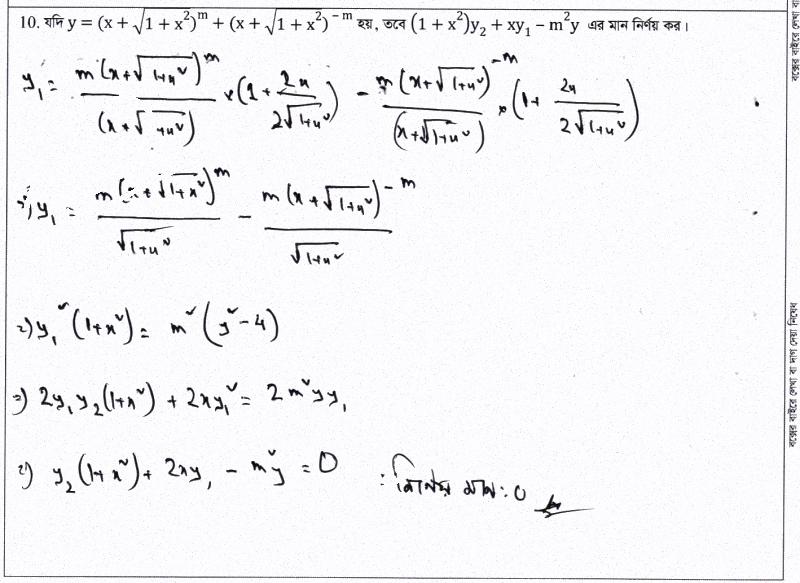 10. যদি y = (x + √1 + x²)ᵐ + (x + √1 + x²)⁻ᵐ হয়, তবে (1 + x²)y₂ + xy₁ – m²y এর মান নির্ণয় কর।
y₁ = m(x+√1+x²)ᵐ / (x+√1+x²) × (1 + 2x / 2√1+x²) – m(x+√1+x²)⁻ᵐ / (x+√1+x²) × (1 + 2x / 2√1+x²)
⇒ y₁ = m(x+√1+x²)ᵐ / √1+x² – m(x+√1+x²)⁻ᵐ / √1+x²
⇒ y₁²(1+x²) = m²(y²-4)
⇒ 2y₁y₂(1+x²) + 2xy₁² = 2m²yy₁
⇒ y₂(1+x²) + 2xy₁ – m²y = 0 ∴ নির্ণেয় মান: 0
বক্সের বাইরে লেখা বা
বক্সের বাইরে লেখা বা দাগ দেয়া নিষেধ